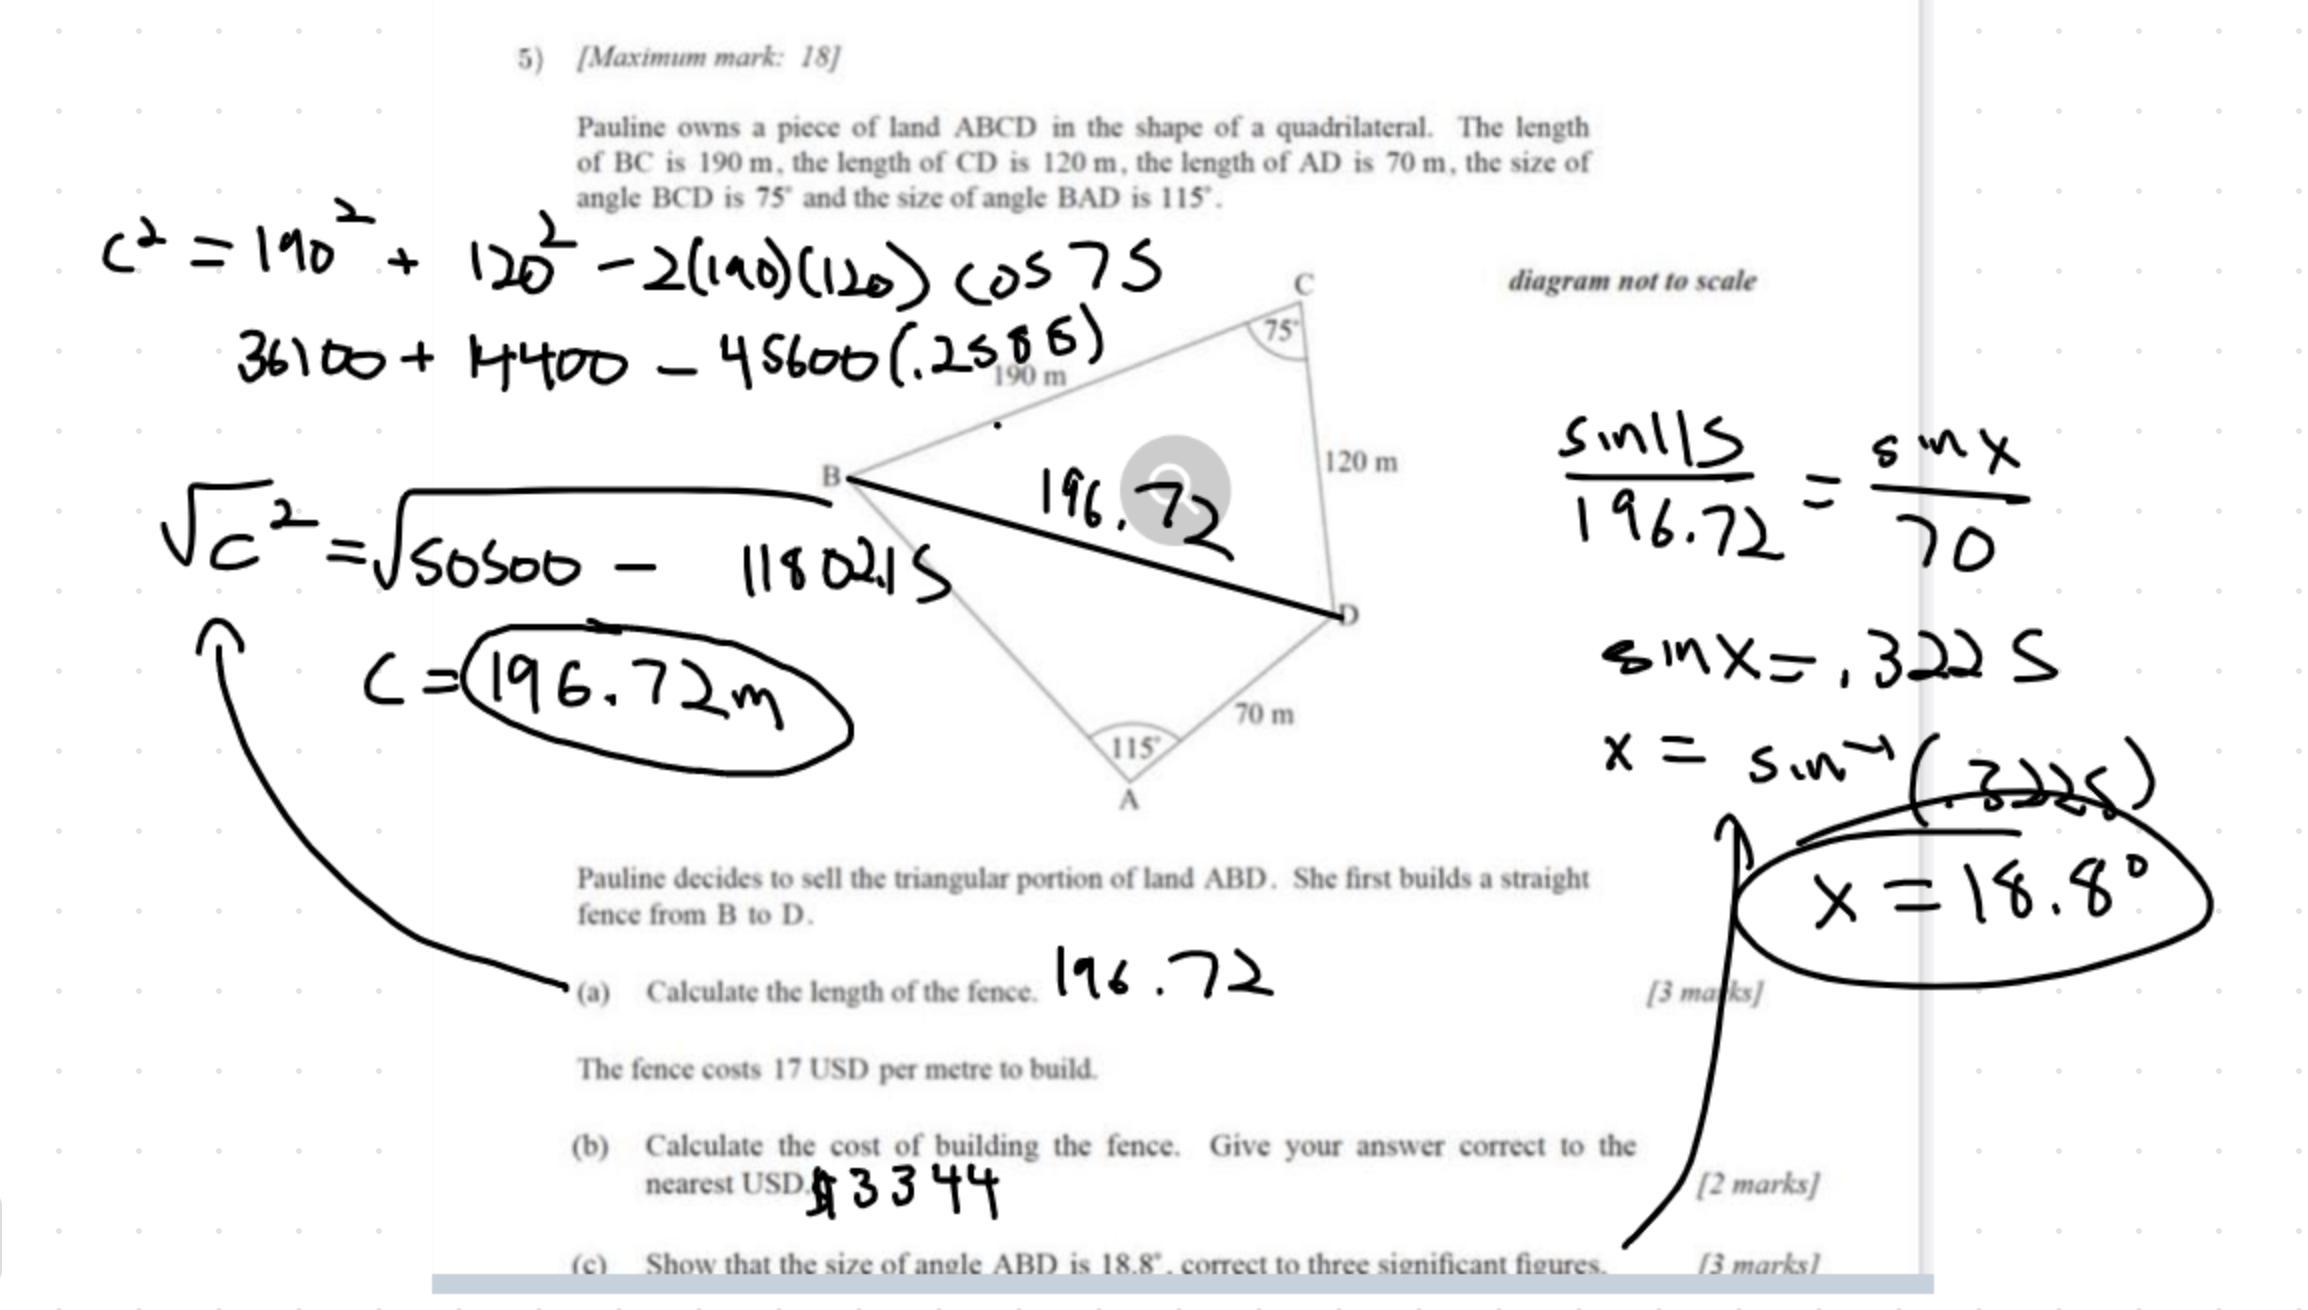 5) [Maximum mark: 18]
Pauline owns a piece of land ABCD in the shape of a quadrilateral. The length
of BC is 190 m, the length of CD is 120 m, the length of AD is 70 m, the size of
angle BCD is 75° and the size of angle BAD is 115°.
c² = 190² + 120² - 2(190)(120) cos 75
diagram not to scale
C
75°
36100 + 14400 - 45600(.2588)
190 m
B
120 m
196.72
sin115/196.72 = sin x/70
√c² = √50500 - 11802.15
D
sin x = .3225
c = 196.72m
70 m
115°
A
x = sin⁻¹(.3225)
x = 18.8°
Pauline decides to sell the triangular portion of land ABD. She first builds a straight
fence from B to D.
(a) Calculate the length of the fence. 196.72 [3 marks]
The fence costs 17 USD per metre to build.
(b) Calculate the cost of building the fence. Give your answer correct to the
nearest USD. $3344 [2 marks]
(c) Show that the size of angle ABD is 18.8°, correct to three significant figures. [3 marks]